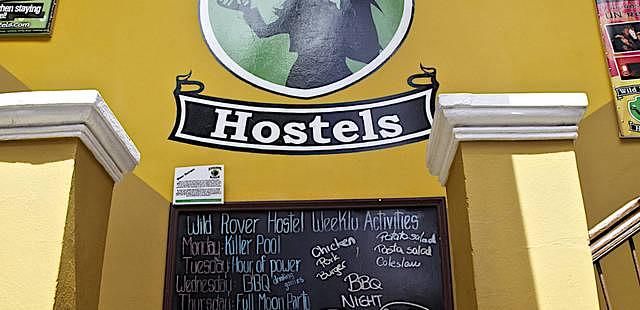 when staying
Hostels
Wild Rover Hostel Weekly Activities
Monday: Killer Pool
Tuesday: Hour of power
Wednesday: BBQ drinking games
Thursday: Full Moon Party
Chicken
Pork
Burger
Potato salad
Pasta salad
Coleslaw
BBQ
NIGHT